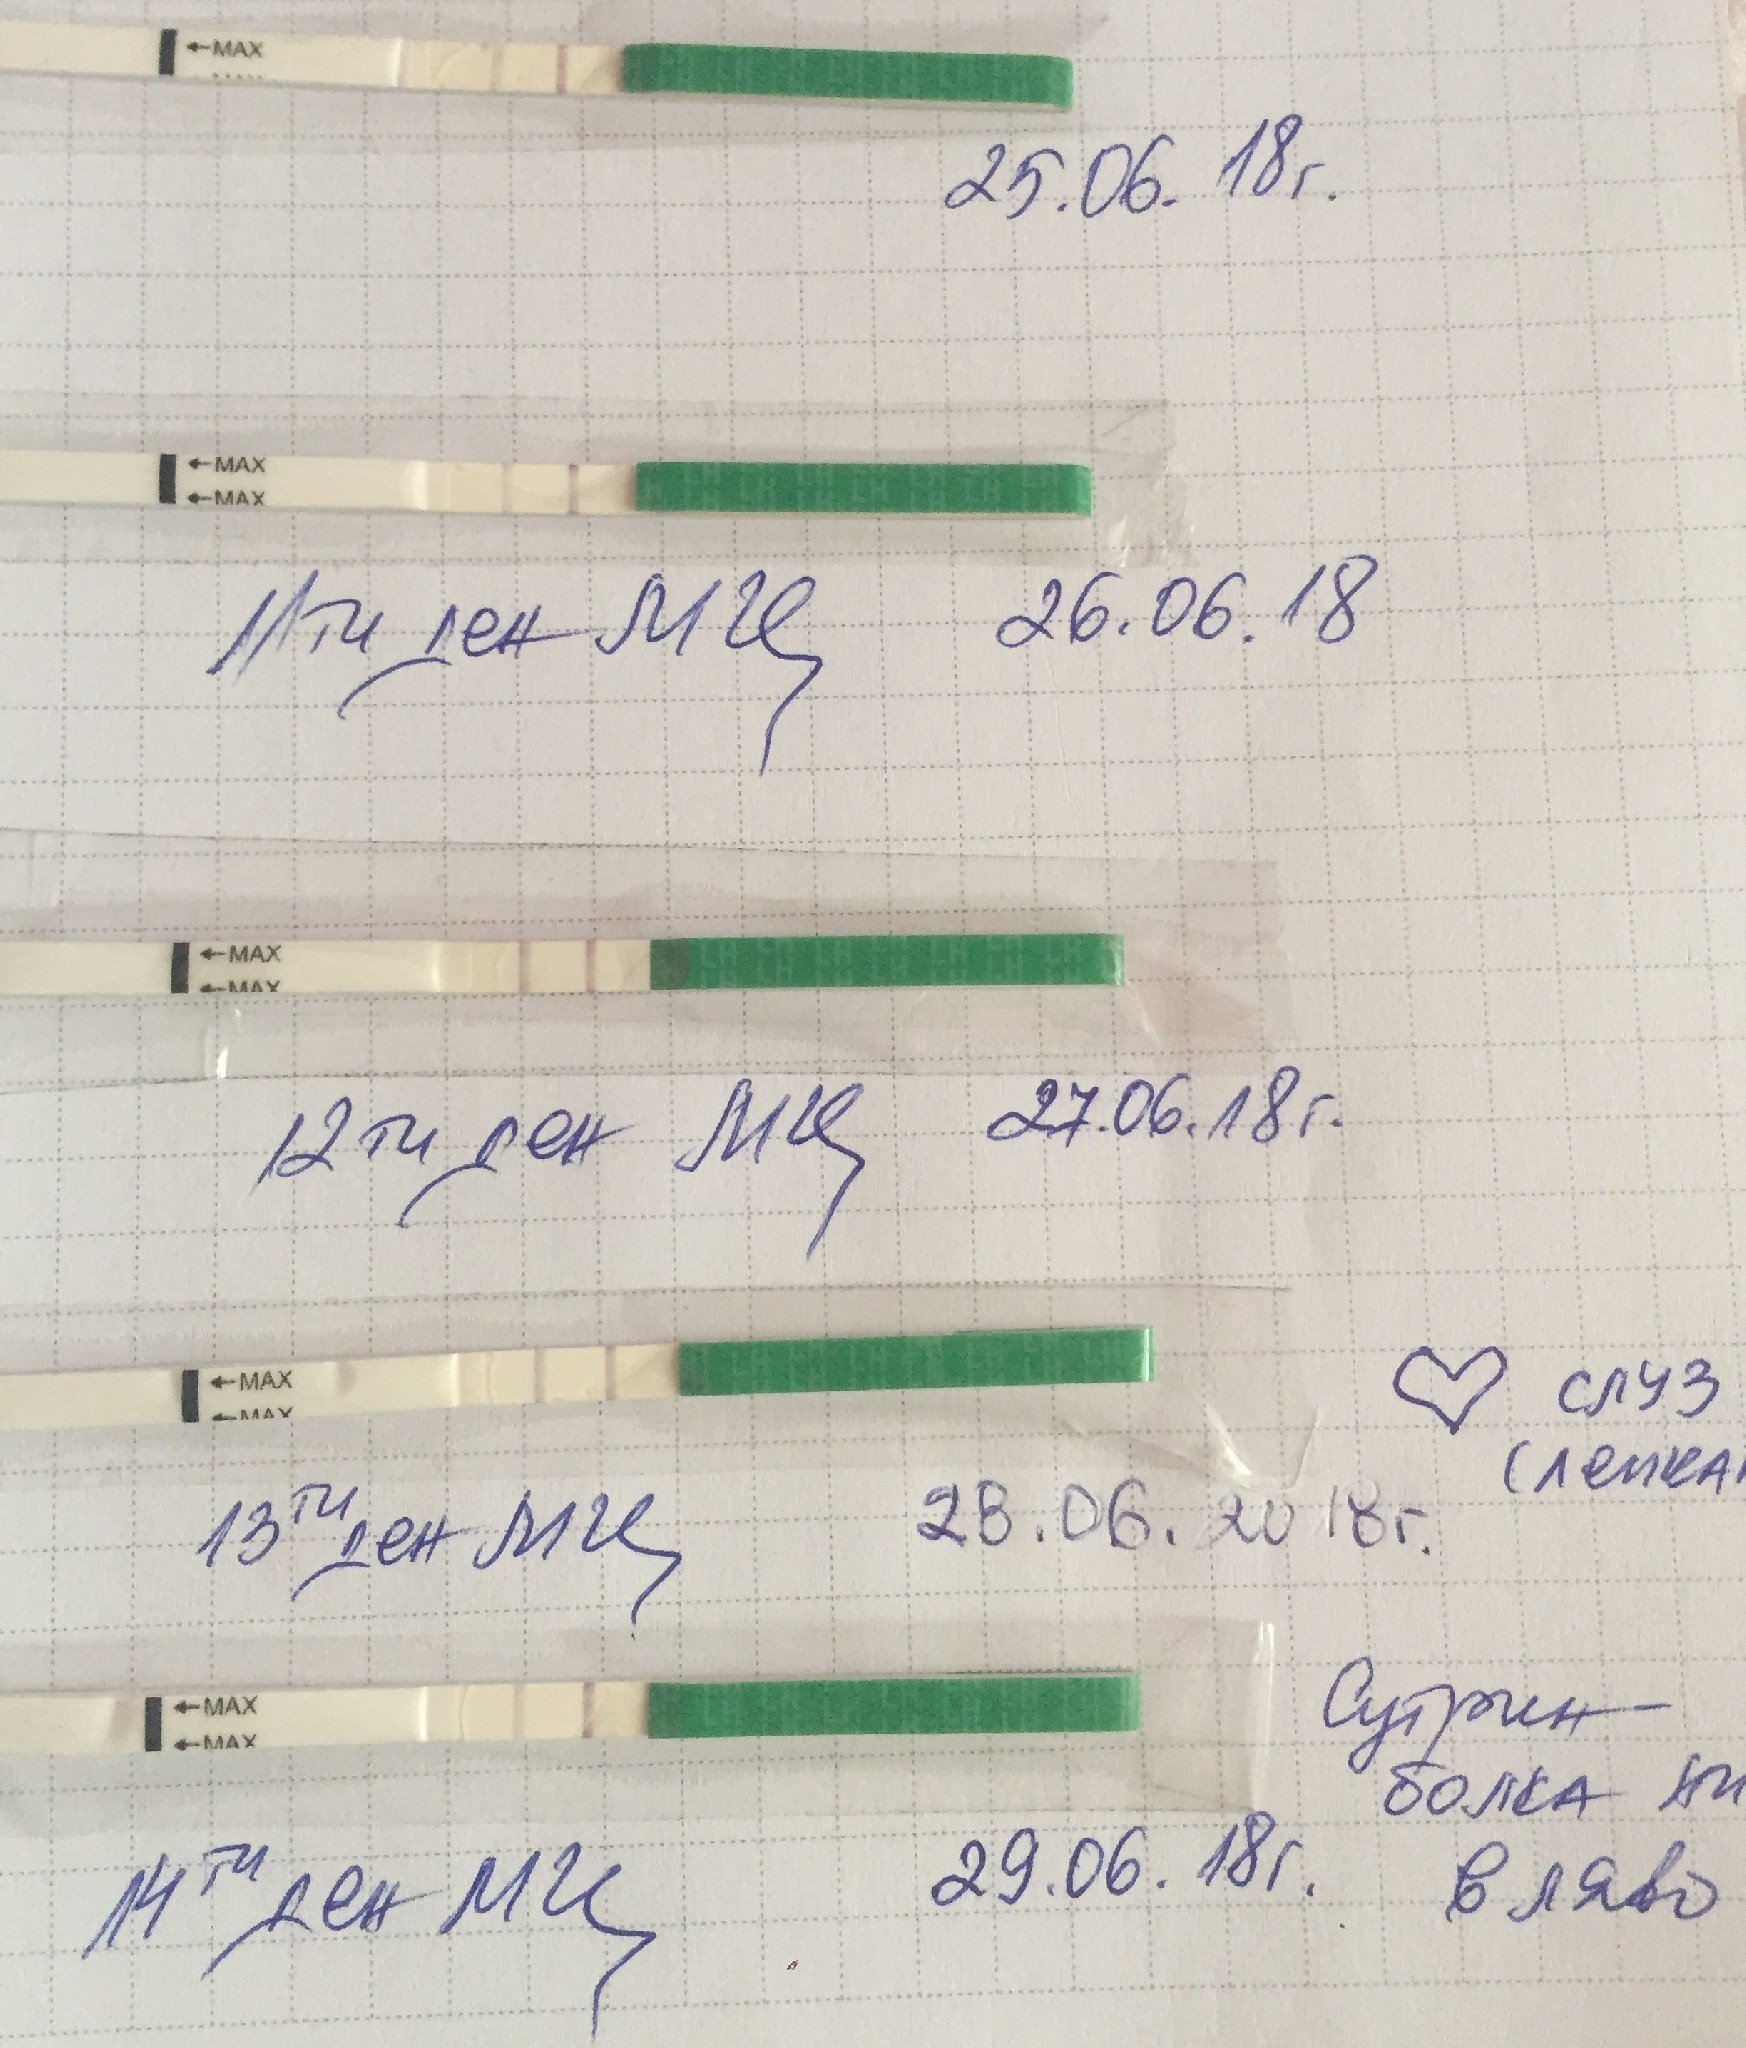 ←MAX
25.06.18г.
←MAX
←MAX
11ти ден МЦ 26.06.18
←MAX
←MAX
12ти ден МЦ 27.06.18г.
←MAX
←MAX
слуз
(лепка
13ти ден МЦ 28.06.2018г.
←MAX
←MAX
Сутрин
болка ни
в ляво
14ти ден МЦ 29.06.18г.